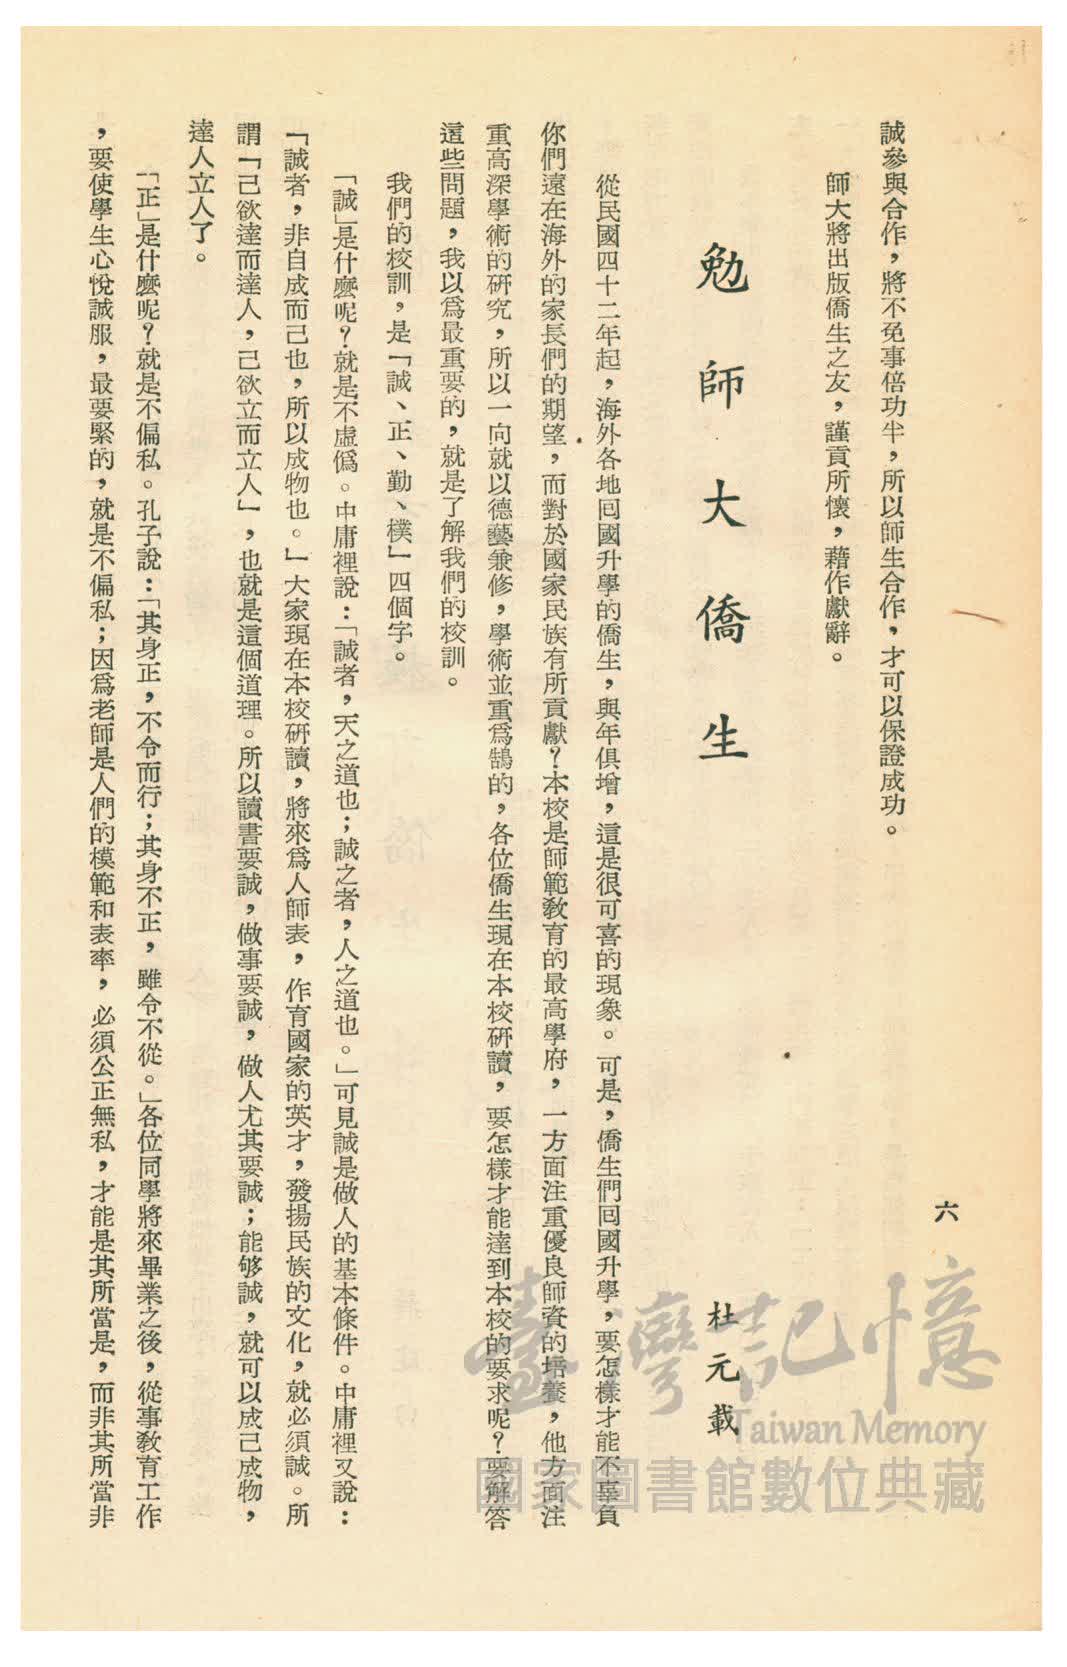 誠參與合作，將不免事倍功半，所以師生合作，才可以保證成功。
師大將出版僑生之友，謹貢所懷，藉作獻辭。
勉師大僑生
杜元載
從民國四十二年起，海外各地囘國升學的僑生，與年俱增，這是很可喜的現象。可是，僑生們囘國升學，要怎樣才能不辜負
你們遠在海外的家長們的期望，而對於國家民族有所貢獻？本校是師範敎育的最高學府，一方面注重優良師資的培養，他方面注
重高深學術的硏究，所以一向就以德藝兼修，學術並重爲鵠的，各位僑生現在本校硏讀，要怎樣才能達到本校的要求呢？要解答
這些問題，我以爲最重要的，就是了解我們的校訓。
我們的校訓，是「誠、正、勤、樸」四個字。
「誠」是什麼呢？就是不虛僞。中庸裡說：「誠者，天之道也；誠之者，人之道也。」可見誠是做人的基本條件。中庸裡又說：
「誠者，非自成而己也，所以成物也。」大家現在本校硏讀，將來爲人師表，作育國家的英才，發揚民族的文化，就必須誠。所
謂「己欲達而達人，己欲立而立人」，也就是這個道理。所以讀書要誠，做事要誠，做人尤其要誠；能够誠，就可以成己成物，
達人立人了。
「正」是什麼呢？就是不偏私。孔子說：「其身正，不令而行；其身不正，雖令不從。」各位同學將來畢業之後，從事敎育工作
，要使學生心悅誠服，最要緊的，就是不偏私；因爲老師是人們的模範和表率，必須公正無私，才能是其所當是，而非其所當非
六
臺灣記憶
Taiwan Memory
國家圖書館數位典藏